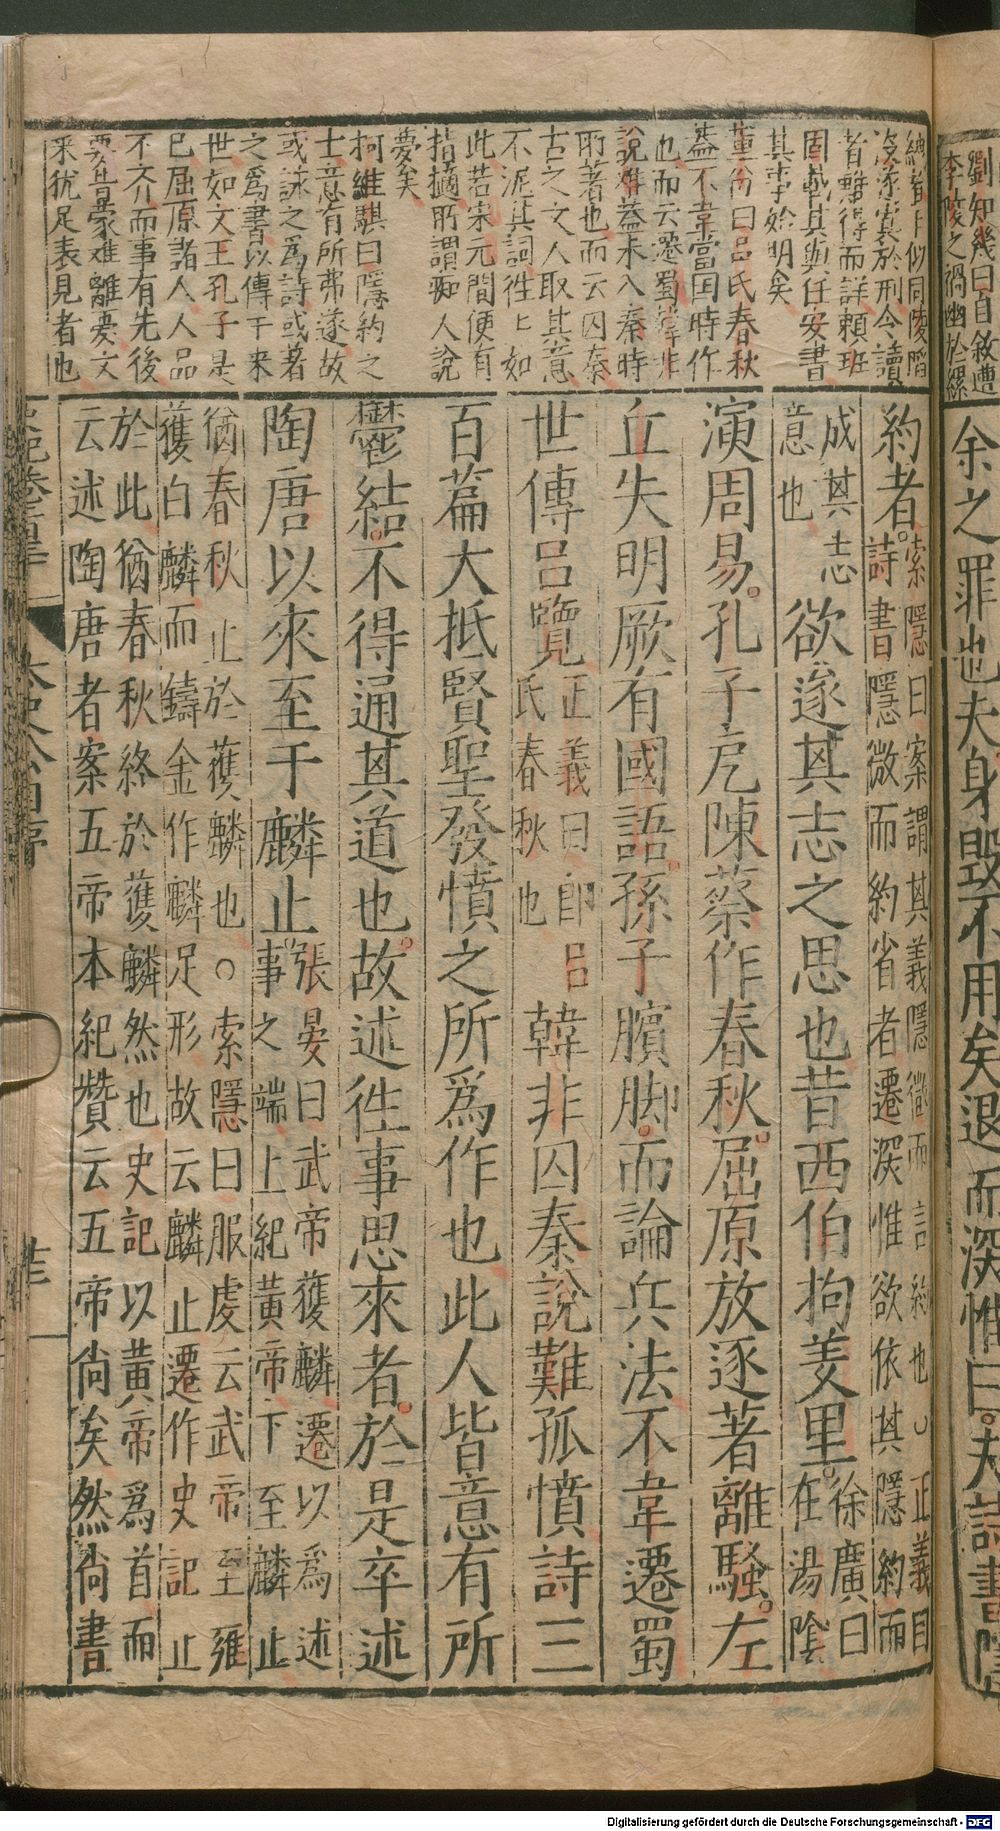 劉知幾曰自敘遭
李陵之禍幽於縲
絏首尾似同陵陷
沒遂寘於刑今讀
者難得而詳賴班
固載其與任安書
其事始明矣
董份曰呂氏春秋
蓋不韋當國時作
也而云遷蜀韓非
說難蓋未入秦時
所著也而云囚秦
古之文人取其意
不泥其詞徃上如
此若宋元間便有
指擿所謂痴人說
夢矣
柯維騏曰隱約之
士意有所弗遂故
或詠之爲詩或著
之爲書以傳于来
世如文王孔子是
已屈原諸人人品
不文介而事有先後
要皆蒙难離憂文
采犹足表見者也
余之罪也夫身毀不用矣退而深惟曰夫詩書隱
約者索隱曰案謂其義隱微而言約也○正義曰
詩書隱微而約省者遷深惟欲依其隱約而
成其志
意也
欲遂其志之思也昔西伯拘羑里徐廣曰
在湯陰
演周易孔子戹陳蔡作春秋屈原放逐著離騷左
丘失明厥有國語孫子臏脚而論兵法不韋遷蜀
世傳呂覽正義曰即呂
氏春秋也
韓非囚秦說難孤憤詩三
百篇大抵賢聖發憤之所爲作也此人皆意有所
鬱結不得通其道也故述徃事思來者於是卒述
陶唐以來至于麟止張晏曰武帝獲麟遷以爲述
事之端上紀黃帝下至麟止
猶春秋止於獲麟也○索隱曰服虔云武帝至雍
獲白麟而鑄金作麟足形故云麟止遷作史記止
於此猶春秋終於獲麟然也史記以黃帝爲首而
云述陶唐者案五帝本紀贊云五帝尚矣然尚書
太史公自序
Digitalisierung gefördert durch die Deutsche Forschungsgemeinschaft - DFG